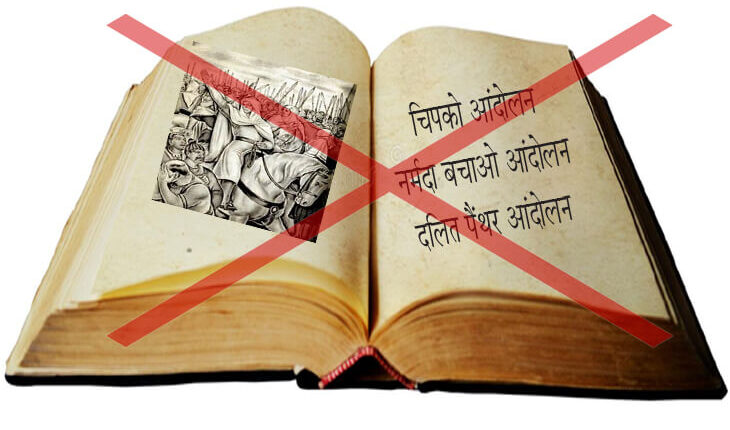 चिपको आंदोलन
नर्मदा बचाओ आंदोलन
दलित पैंथर आंदोलन